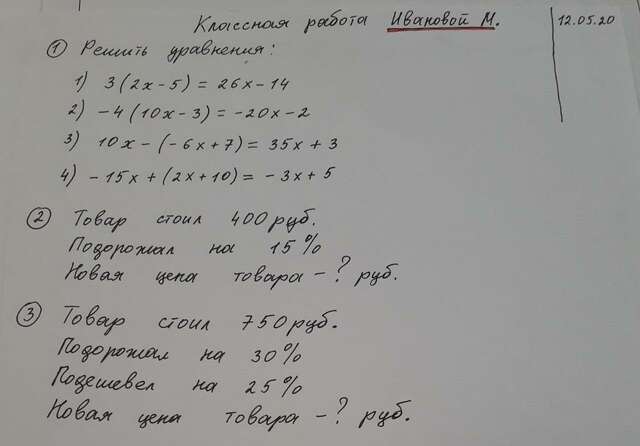 Классная работа Ивановой М. 12.05.20
① Решить уравнения:
1) 3(2x-5) = 26x-14
2) -4(10x-3) = -20x-2
3) 10x-(-6x+7) = 35x+3
4) -15x+(2x+10) = -3x+5
② Товар стоил 400 руб.
Подорожал на 15%
Новая цена товара - ? руб.
③ Товар стоил 750 руб.
Подорожал на 30%
Подешевел на 25%
Новая цена товара - ? руб.